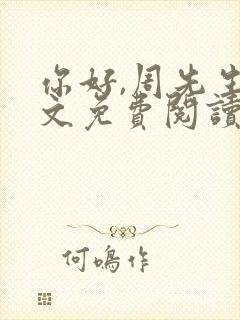 你好,周先生
文免費閱讀
何鳴作